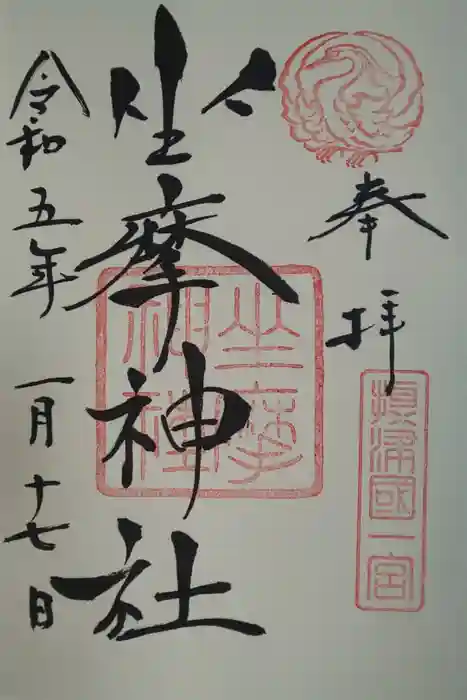 奉拝
摂津國一宮
坐摩神社
坐摩神社
令和五年一月十七日